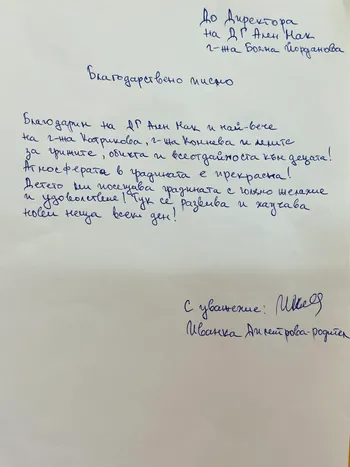 До Директора
на ДГ Ален Мак
г-жа Бояна Йорданова
Благодарствено писмо
Благодарим на ДГ Ален Мак и най-вече
на г-жа Котрикова, г-жа Коннева и лелите
за грижите, обичта и всеотдайността към децата!
Атмосферата в градината е прекрасна!
Детето ми посещава градината с голямо желание
и удоволствие! Тук се развива и научава
нови неща всеки ден!
С уважение:
Иванка Димитрова-родител